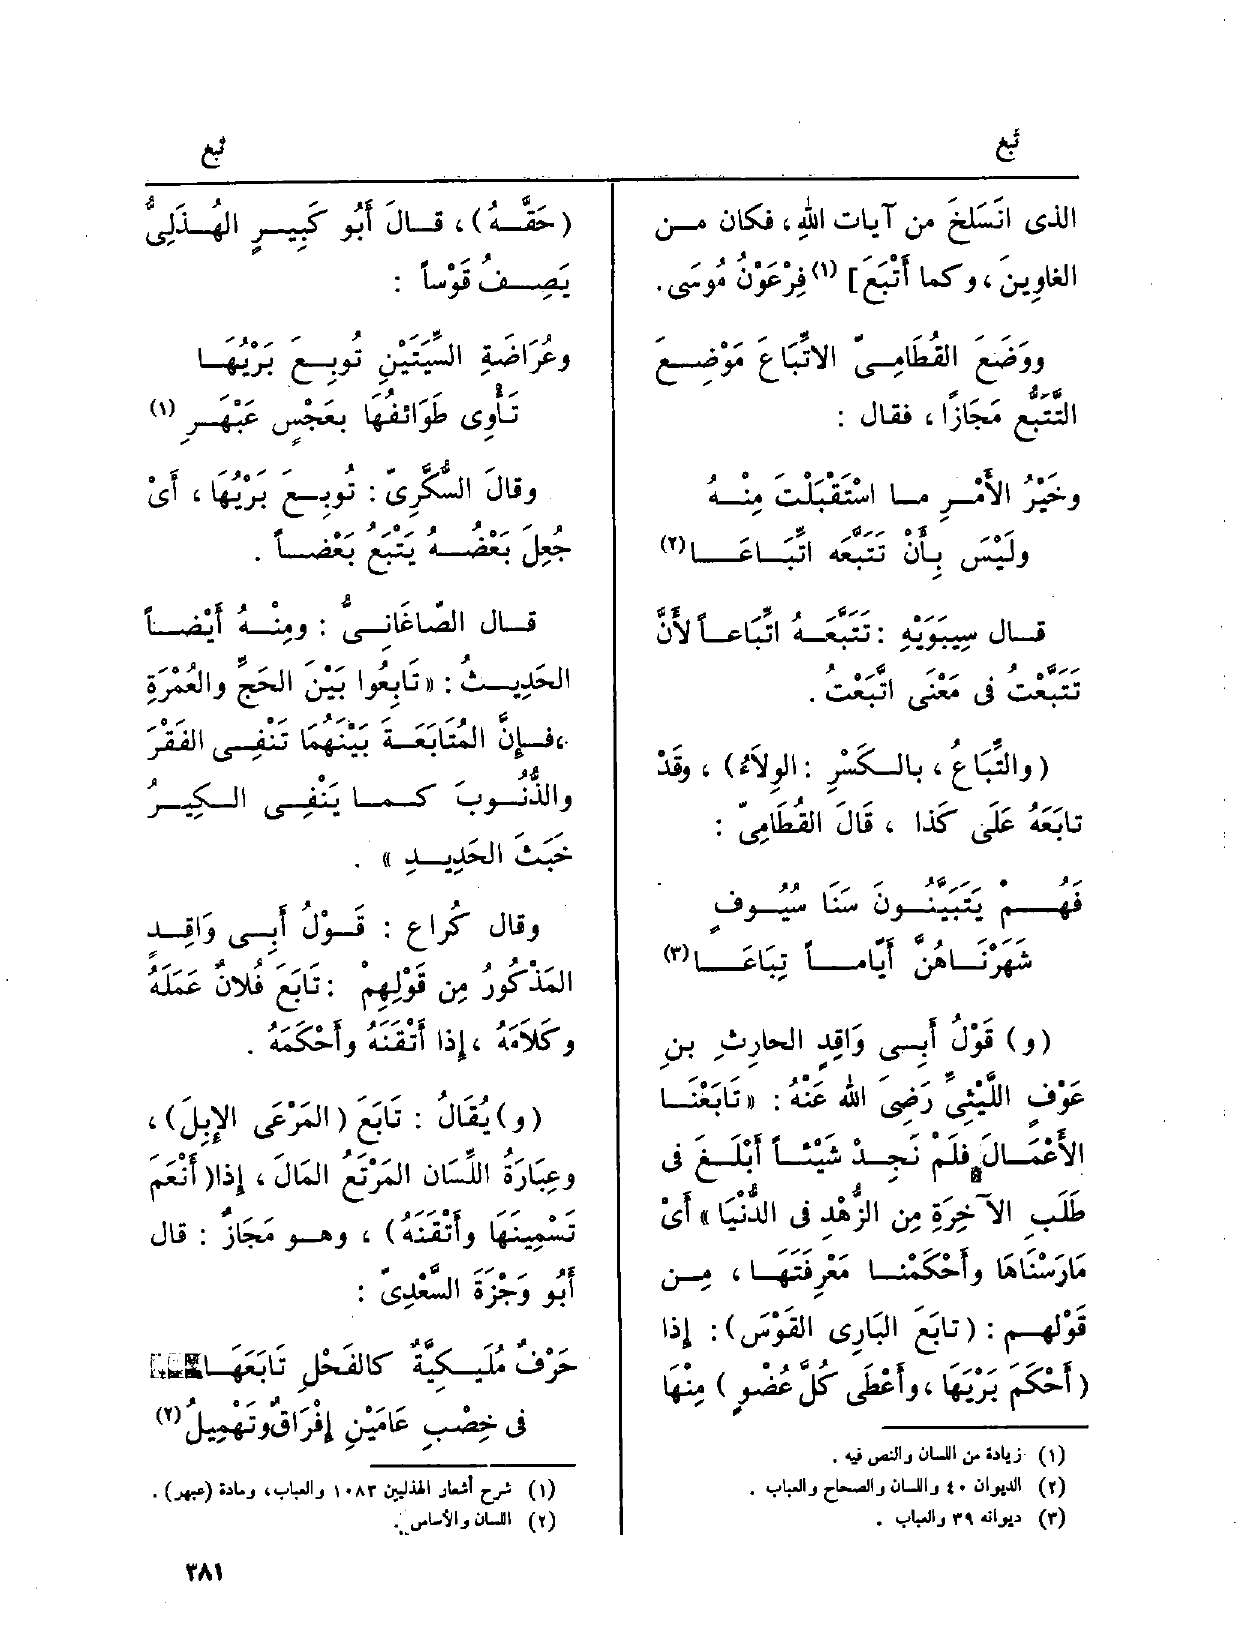 تبع
تبع
الذى انْسَلَخَ من آيات اللهِ، فكان مـن
الغاوِينَ، وكما أَتْبَعَ] (١) فِرْعَوْنُ مُوسَى.
ووَضَعَ القُطَامِـىّ الاتِّبَاعَ مَوْضِـعَ
التَّتَبُّعِ مَجَازًا، فقال :
وخَيْرُ الأَمْـرِ مـا اسْتَقْبَلْتَ مِنْـهُ
ولَيْسَ بِـأَنْ تَتَبَّعَه اتِّبَـاعَــا (٢)
قـال سِيبَوَيْهِ : تَتَبَّعَـهُ اتِّبَاعـاً لأَنَّ
تَتَبَّعْتُ فى مَعْنَى اتَّبَعْتُ .
(والتِّبَاعُ، بالـكَسْرِ : الوِلاَءُ) ، وقَدْ
تابَعَهُ عَلَى كَذا ، قَالَ القُطَامِىّ :
فَهُـــمْ يَتَبَيَّنُــونَ سَنَا سُيُــوفٍ
شَهَرْنَــاهُنَّ أَيّامــاً تِبَاعَــا (٣)
(و) قَوْلُ أَبِـى وَاقِدٍ الحارِثِ بنِ
عَوْفٍ اللَّيْثِىِّ رَضِىَ اللهُ عَنْهُ : «تَابَعْنَـا
الأَعْمَـالَ فلَمْ نَجِـدْ شَيْئـاً أَبْلَـغَ فى
طَلَبِ الآخِرَةِ مِن الزُّهْدِ فى الدُّنْيَا» أَىْ
مَارَسْنَاهَا وأَحْكَمْنـا مَعْرِفَتَهَـا، مِـن
قَوْلِهـم : (تابَعَ البَارِى القَوْسَ) : إذا
(أَحْكَمَ بَرْيَهَا، وأَعْطَى كُلَّ عُضْوٍ) مِنْهَا
(١) زيادة من اللسان والنص فيه .
(٢) الديوان ٤٠ واللسان والصحاح والعباب .
(٣) ديوانه ٣٩ والعباب .
(حَقَّـهُ) ، قـالَ أَبُو كَبِيـرٍ الهُـذَلِىُّ
يَصِـفُ قَوْساً :
وعُرَاضَةِ السِّيَتَيْنِ تُوبِـعَ بَرْيُهَـا
تَـأْوِى طَوَائفُهَا بعَجْسٍ عَبْهَـرِ (١)
وقالَ السُّكَّرِىّ : تُوبِـعَ بَرْيُهَا ، أَىْ
جُعِلَ بَعْضُـهُ يَتْبَعُ بَعْضـاً .
قـال الصّاغَانِـىُّ : ومِنْـهُ أَيْضـاً
الحَدِيـثُ : «تَابِعُوا بَيْنَ الحَجِّ والعُمْرَةِ
،فـإِنَّ المُتَابَعَـةَ بَيْنَهُمَا تَنْفِـى الفَقْرَ
والذُّنُـوبَ كـمـا يَنْفِـى الـكِيـرُ
خَبَثَ الحَدِيـدِ» .
وقال كُراع : قَـوْلُ أَبِـى وَاقِـدٍ
المَذْكُورُ مِن قَوْلِهِمْ : تَابَعَ فُلانٌ عَمَلَهُ
وكَلاَمَهُ ، إذا أَتْقَنَهُ وأَحْكَمَهُ .
(و) يُقَالُ : تَابَعَ (المَرْعَى الإِبِلَ) ،
وعِبَارَةُ اللِّسَان المَرْتَعُ المَالَ ، إذا (أَنْعَمَ
تَسْمِينَهَا وأَتْقَنَهُ) ، وهـو مَجَازٌ : قال
أَبُو وَجْزَةَ السَّعْدِىّ :
حَرْفٌ مُلَيْـكِيَّةٌ كالفَحْلِ تَابَعَهَـا
فى خِصْبِ عَامَيْنِ إِفْرَاقٌ وتَهْمِيلُ (٢)
(١) شرح أشعار الهذليين ١٠٨٣ والعباب، ومادة (عبهر) .
(٢) اللسان والأساس .
٣٨١